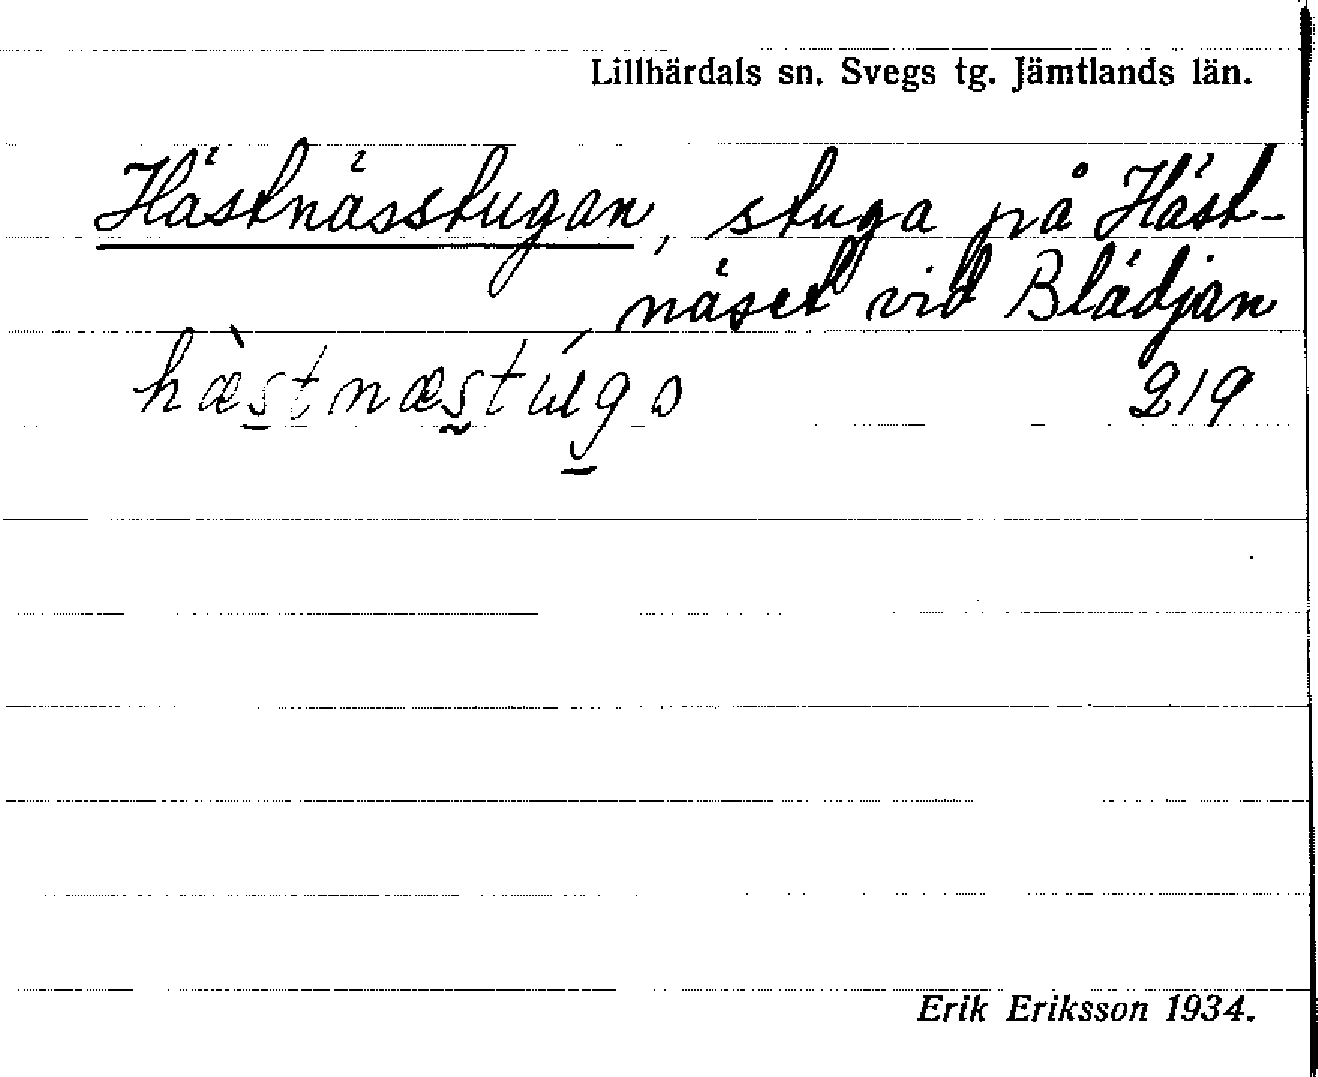 Lillhärdals sn. Svegs tg. Jämtlands län.
Hästnässtugan, stuga på Häst-
näset vid Blädjan
hæ̀s̠tnæs̰túg̠o 219
Erik Eriksson 1934.